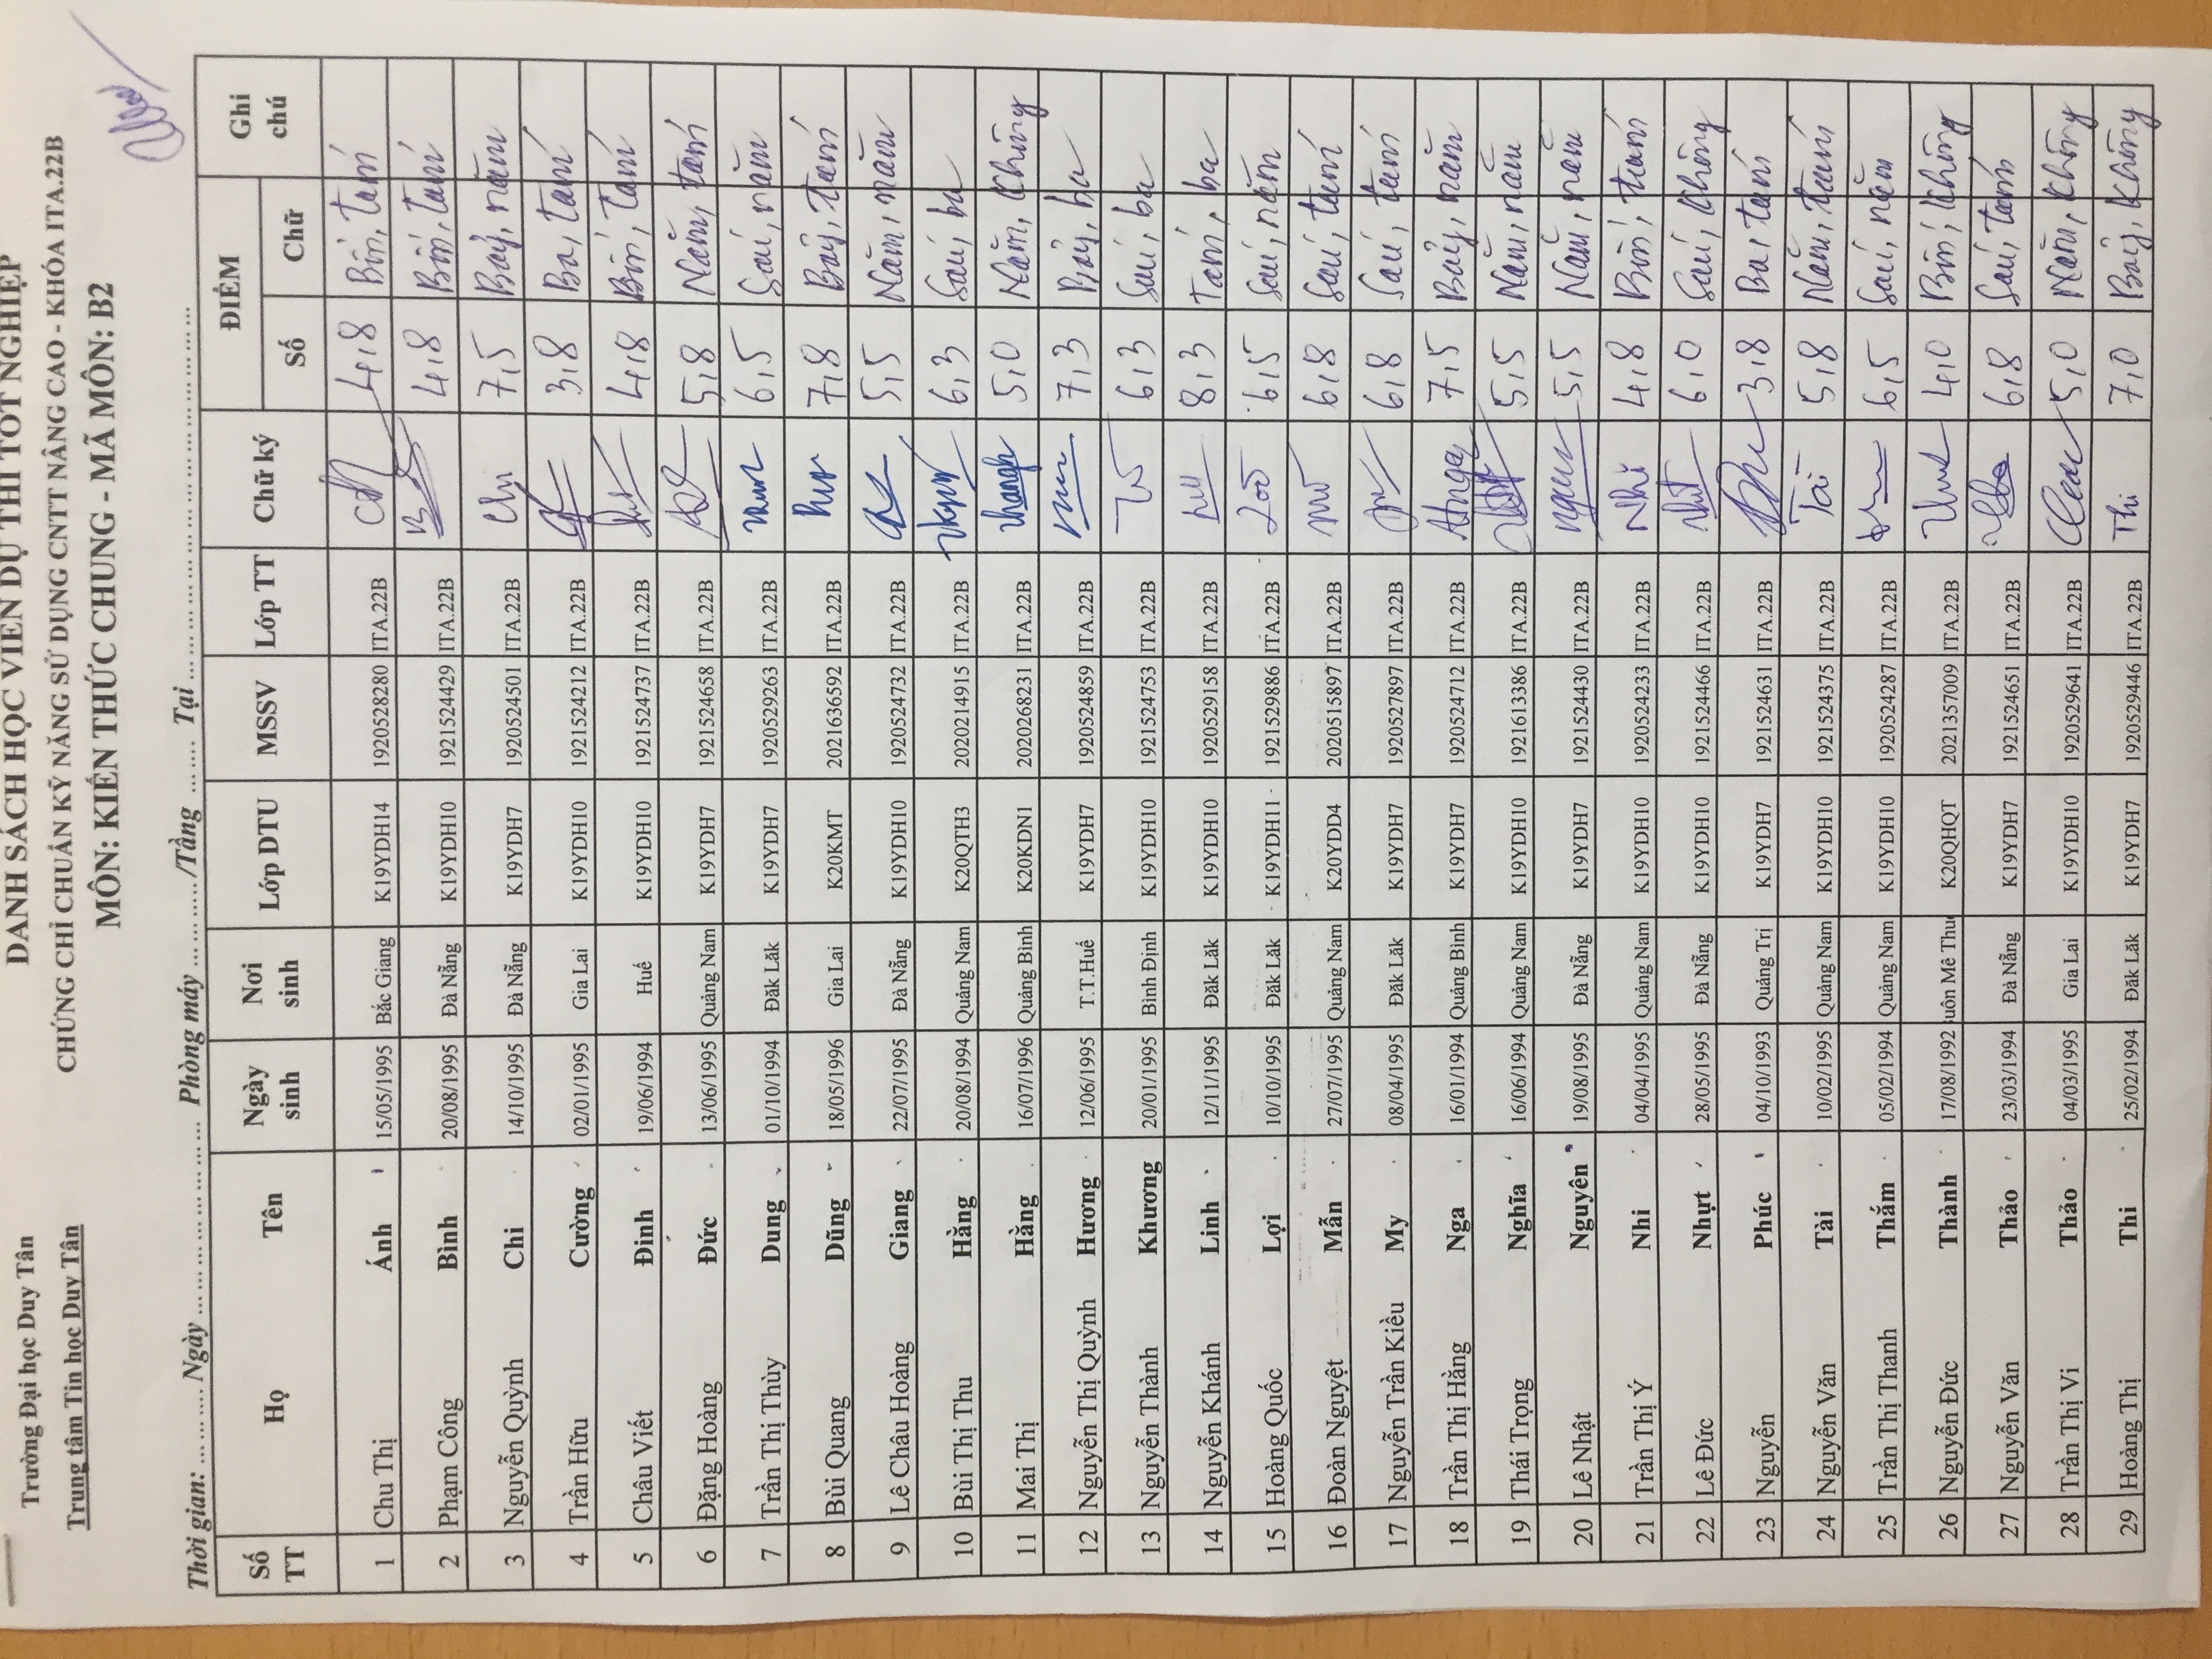 Trường Đại học Duy Tân
Trung tâm Tin học Duy Tân
DANH SÁCH HỌC VIÊN DỰ THI TỐT NGHIỆP
CHỨNG CHỈ CHUẨN KỸ NĂNG SỬ DỤNG CNTT NÂNG CAO - KHÓA ITA.22B
MÔN: KIẾN THỨC CHUNG - MÃ MÔN: B2
Thời gian: ......... Ngày ........................ Phòng máy ............/Tầng ...... Tại ........................
Số TT Họ Tên Ngày sinh Nơi sinh Lớp DTU MSSV Lớp TT Chữ ký ĐIỂM Số Chữ Ghi chú
1 Chu Thị Ánh 15/05/1995 Bắc Giang K19YDH14 1920528280 ITA.22B 4,8 Bốn, tám
2 Phạm Công Bình 20/08/1995 Đà Nẵng K19YDH10 1921524429 ITA.22B 4,8 Bốn, tám
3 Nguyễn Quỳnh Chi 14/10/1995 Đà Nẵng K19YDH7 1920524501 ITA.22B Chi 7,5 Bảy, năm
4 Trần Hữu Cường 02/01/1995 Gia Lai K19YDH10 1921524212 ITA.22B 3,8 Ba, tám
5 Châu Viết Đinh 19/06/1994 Huế K19YDH10 1921524737 ITA.22B 4,8 Bốn, tám
6 Đặng Hoàng Đức 13/06/1995 Quảng Nam K19YDH7 1921524658 ITA.22B 5,8 Năm, tám
7 Trần Thị Thùy Dung 01/10/1994 Đăk Lăk K19YDH7 1920529263 ITA.22B 6,5 Sáu, năm
8 Bùi Quang Dũng 18/05/1996 Gia Lai K20KMT 2021636592 ITA.22B 7,8 Bảy, tám
9 Lê Châu Hoàng Giang 22/07/1995 Đà Nẵng K19YDH10 1920524732 ITA.22B 5,5 Năm, năm
10 Bùi Thị Thu Hằng 20/08/1994 Quảng Nam K20QTH3 2020214915 ITA.22B 6,3 Sáu, ba
11 Mai Thị Hằng 16/07/1996 Quảng Bình K20KDN1 2020268231 ITA.22B 5,0 Năm, không
12 Nguyễn Thị Quỳnh Hương 12/06/1995 T.T.Huế K19YDH7 1920524859 ITA.22B 7,3 Bảy, ba
13 Nguyễn Thành Khương 20/01/1995 Bình Định K19YDH10 1921524753 ITA.22B 6,3 Sáu, ba
14 Nguyễn Khánh Linh 12/11/1995 Đăk Lăk K19YDH10 1920529158 ITA.22B 8,3 Tám, ba
15 Hoàng Quốc Lợi 10/10/1995 Đăk Lăk K19YDH11 1921529886 ITA.22B 6,5 Sáu, năm
16 Đoàn Nguyệt Mẫn 27/07/1995 Quảng Nam K20YDD4 2020515897 ITA.22B 6,8 Sáu, tám
17 Nguyễn Trần Kiều My 08/04/1995 Đăk Lăk K19YDH7 1920527897 ITA.22B 6,8 Sáu, tám
18 Trần Thị Hằng Nga 16/01/1994 Quảng Bình K19YDH7 1920524712 ITA.22B 7,5 Bảy, năm
19 Thái Trọng Nghĩa 16/06/1994 Quảng Nam K19YDH10 1921613386 ITA.22B 5,5 Năm, năm
20 Lê Nhật Nguyên 19/08/1995 Đà Nẵng K19YDH7 1921524430 ITA.22B 5,5 Năm, năm
21 Trần Thị Ý Nhi 04/04/1995 Quảng Nam K19YDH10 1920524233 ITA.22B Nhi 4,8 Bốn, tám
22 Lê Đức Nhựt 28/05/1995 Đà Nẵng K19YDH10 1921524466 ITA.22B 6,0 Sáu, không
23 Nguyễn Phúc 04/10/1993 Quảng Trị K19YDH7 1921524631 ITA.22B 3,8 Ba, tám
24 Nguyễn Văn Tài 10/02/1995 Quảng Nam K19YDH10 1921524375 ITA.22B Tài 5,8 Năm, tám
25 Trần Thị Thanh Thắm 05/02/1994 Quảng Nam K19YDH10 1920524287 ITA.22B 6,5 Sáu, năm
26 Nguyễn Đức Thành 17/08/1992 uôn Mê Thu K20QHQT 2021357009 ITA.22B 4,0 Bốn, không
27 Nguyễn Văn Thảo 23/03/1994 Đà Nẵng K19YDH7 1921524651 ITA.22B 6,8 Sáu, tám
28 Trần Thị Vi Thảo 04/03/1995 Gia Lai K19YDH10 1920529641 ITA.22B 5,0 Năm, không
29 Hoàng Thị Thi 25/02/1994 Đăk Lăk K19YDH7 1920529446 ITA.22B Thi 7,0 Bảy, không